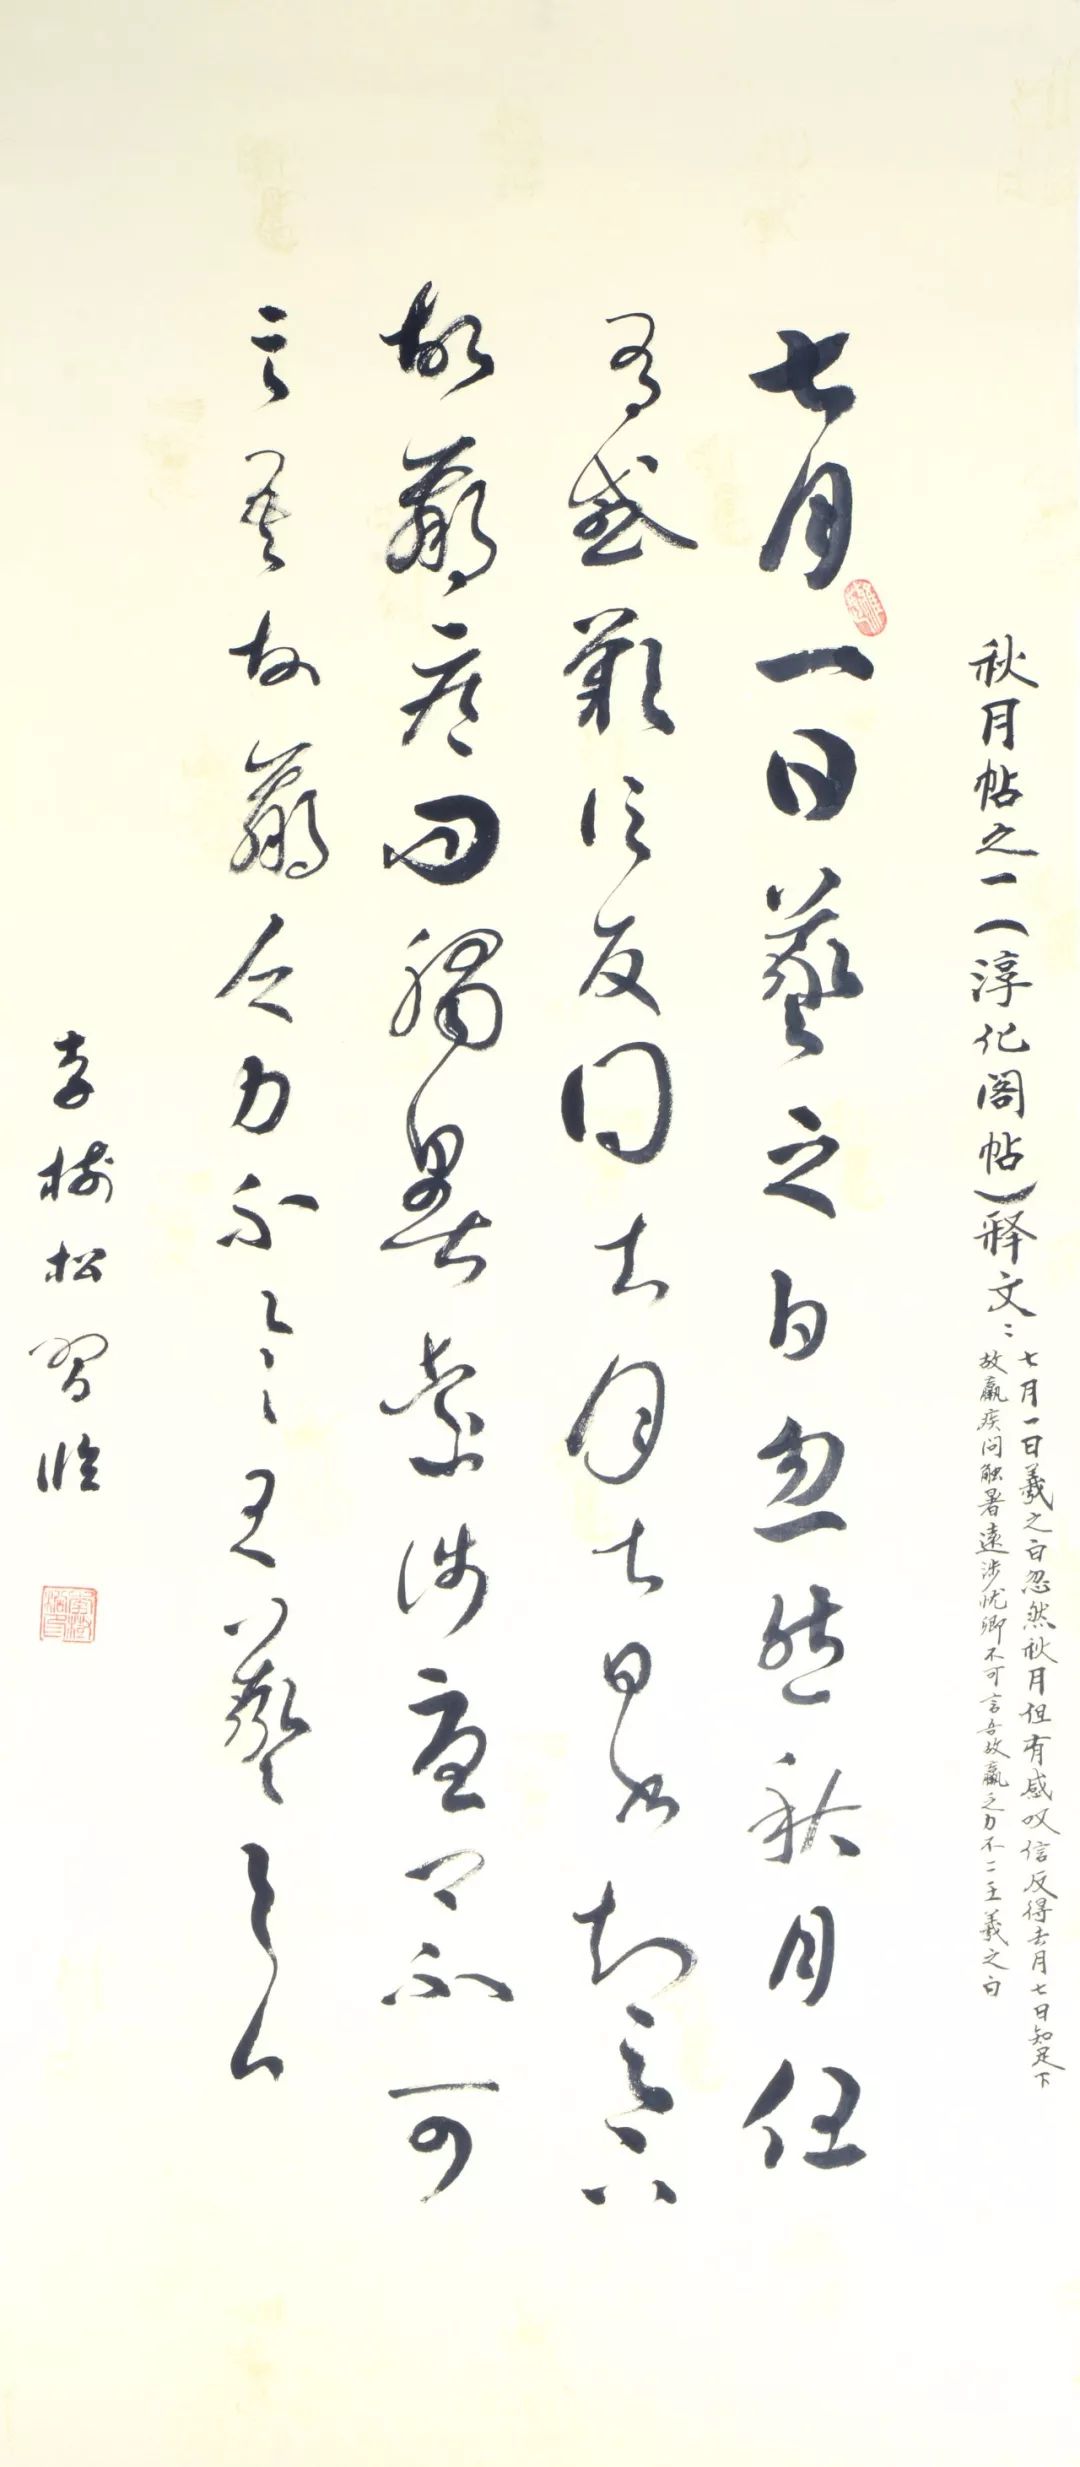 秋月帖之一（淳化阁帖）释文：
七月一日羲之白忽然秋月但有感叹信反得去月七日知足下
故羸疾问触暑遠涉忧卿不可言吾故羸乏力不二王羲之白
七月一日羲之白忽然秋月但
有感歎信反得去月七日書知足下
故羸疾问觸暑遠涉憂卿不可
言吾故羸乏力不一一王羲之白
李樹松習临